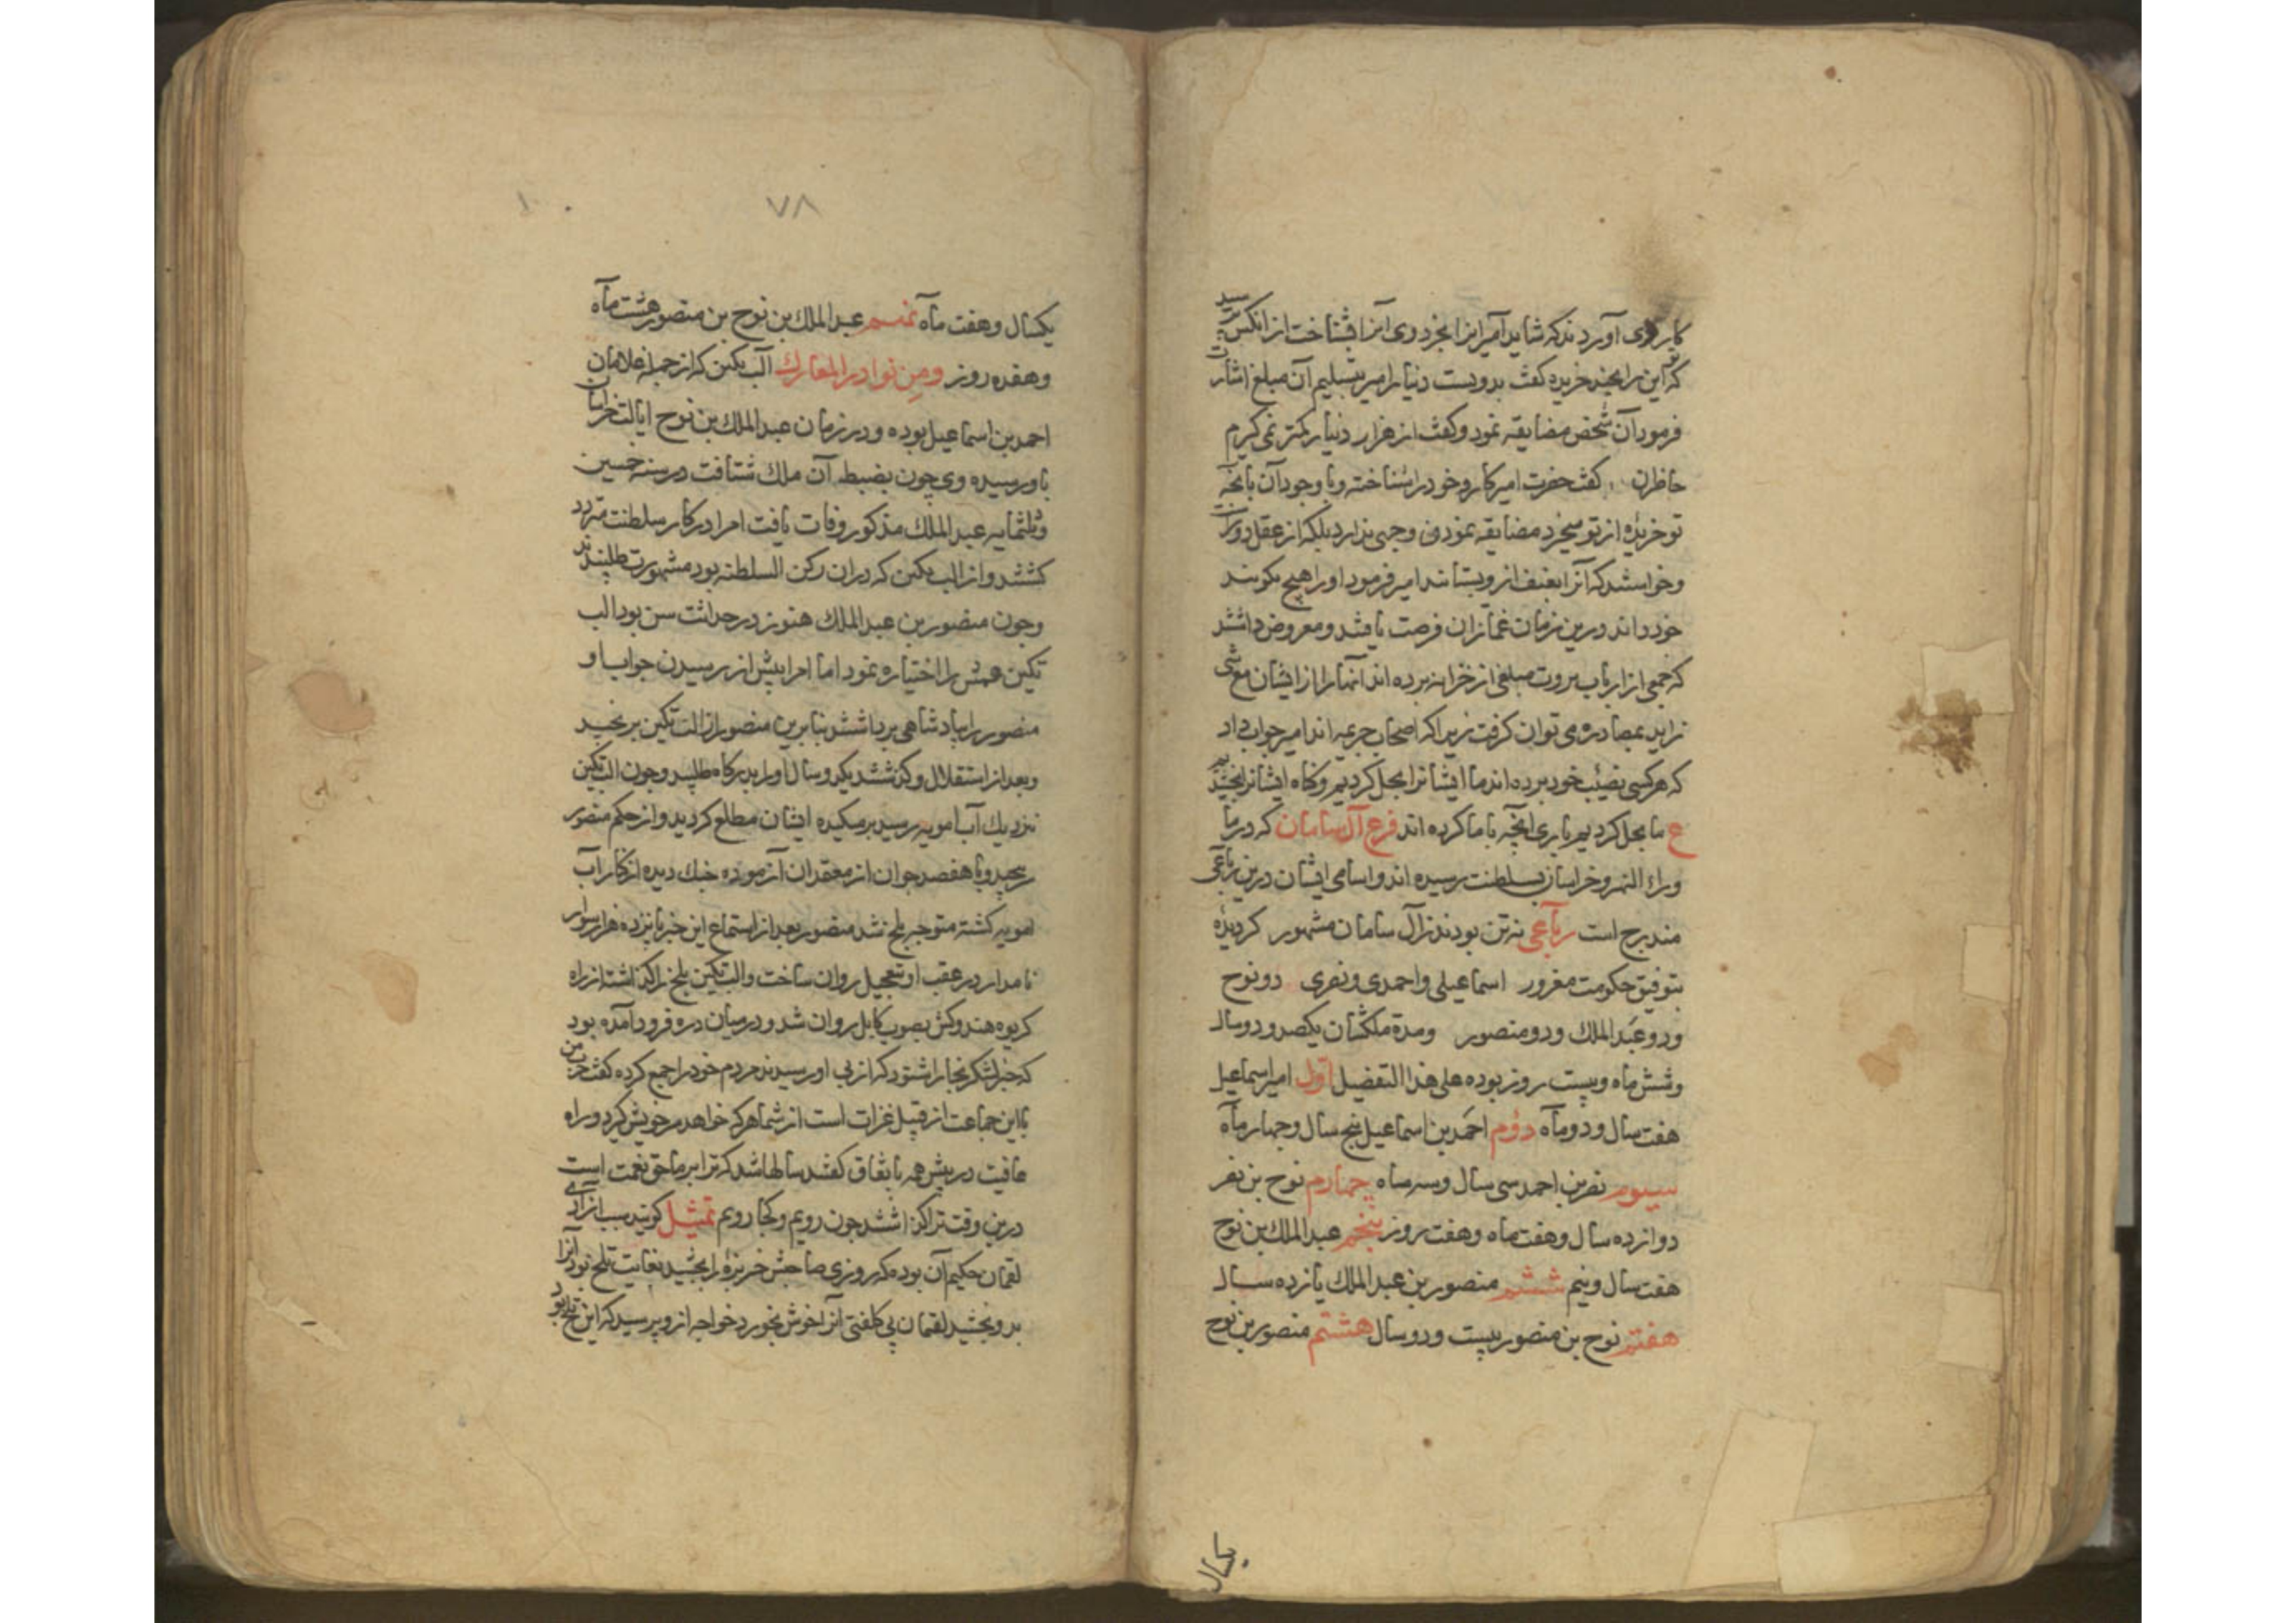 کاردی آوردند که شاید امیر انرا بخرد وی انرا بشناخت از انکس پرسید
که تو این را بچند خریده کفت بدویست دنیار امیر بتسلیم آن مبلغ اشارت
فرمود آن شخص مضایقه نمود و کفت از هزار دنیار کمتر نمی کیرم
حاظران کفتند حضرت امیر کارد خود را شناخته و با وجود آن بانچه
تو خریدهٔ از تو میخرد مضایقه نمودن وجهی ندارد بلکه از عقل دورست
و خواستند که آنرا بعنف از و بستانند امیر فرمود او را هیچ مکویند
خود داند درین زمان غمازان فرصت یافتند و معروض داشتند
که جمعی از ارباب ثروت مبلغی از خزانه برده اند آنها را از ایشان مع شی
زاید بمصادره می توان کرفت زیرا که اصحاب جریمه اند امیر جواب داد
که هر کسی نصیب خود برده اند ما ایشانرا بحل کردیم و کناه ایشانرا بخشیدیم
ع ما بحل کردیم باری انچه با ما کرده اند فرع آل سامان که در ما
وراء النهر و خراسان بسلطنت رسیده اند و اسامی ایشان درین رباعی
مندرج است رباعی نه تن بودند زآل سامان مشهور کردیدهٔ
بتوفیق حکومت مغرور اسماعیلی و احمدی و نصری دو نوح
و دو عبد الملك و دو منصور و مدة ملکشان یکصد و دو سال
و شش ماه و بیست روز بوده علی هذا التفضیل اول امیر اسماعیل
هفت سال و دو ماه دوم احمد بن اسماعیل پنج سال و چهار ماه
سیوم نصر بن احمد سی سال و سه ماه چهارم نوح بن نصر
دوازده سال و هفت ماه و هفت روز پنجم عبد الملك بن نوح
هفت سال و نیم ششم منصور بن عبد الملك یازده سال
هفتم نوح بن منصور بیست و دو سال هشتم منصور بن نوح
یکسال
۷۸
یکسال و هفت ماه نهم عبد الملك بن نوح بن منصور هشت ماه
و هفده روز ومن نوادر المعارك الب تکین که از جملهٔ غلامان
احمد بن اسماعیل بوده و در زمان عبد الملك بن نوح ایالت خراسان
باو رسیده وی چون بضبط آن ملك شتافت در سنه خمسین
و ثلثمایه عبد الملك مذکور وفات یافت امرا در کار سلطنت متردد
کشتند و از الب تکین که دران رکن السلطنه بود مشورت طلبیدند
و چون منصور بن عبد الملك هنوز در حداثت سن بود الب
تکین عمش را اختیار نمود اما امرا پیش از رسیدن جواب او
منصور را بپادشاهی برداشتند بنا برین منصور از الب تکین برنجید
و بعد از استقلال و کذشتن یکدو سال او را بدرکاه طلبید و چون الب تکین
نزدیك آب امویه رسید بر مکیدهٔ ایشان مطلع کردید و از حکم منصور
پیچید و با هفصد جوان از معتمدان آزموده جنك دیده از کنار آب
امویه کشته متوجه بلخ شد منصور بعد از استماع این خبر پانزده هزار سوار
نامدار در عقب او بتعجیل روان ساخت و الب تکین بلخ را کذاشته از راه
کریوه هندوکش بصوب کابل روان شد و در میان دره فرود آمده بود
که خبر لشکر بخارا شنود که از پی او رسیدند مردم خود را جمع کرده کفت حرب من
با این جماعت از قبیل غزات است از شما هر که خواهد سر خویش کیرد و راه
عافیت در پیش همه باتفاق کفتند سالها شد که ترا بر ما حق نعمت است
درین وقت ترا کذاشته چون رویم و کجا رویم تمثیل کویند سبب ازادی
لقمان حکیم آن بوده که روزی صاحبش خربزهٔ را بچشید بغایت تلخ بود آنرا
بدو بخشید لقمان بی کلفتی آنرا خوش بخورد خواجه از و پرسید که این تلخ بود